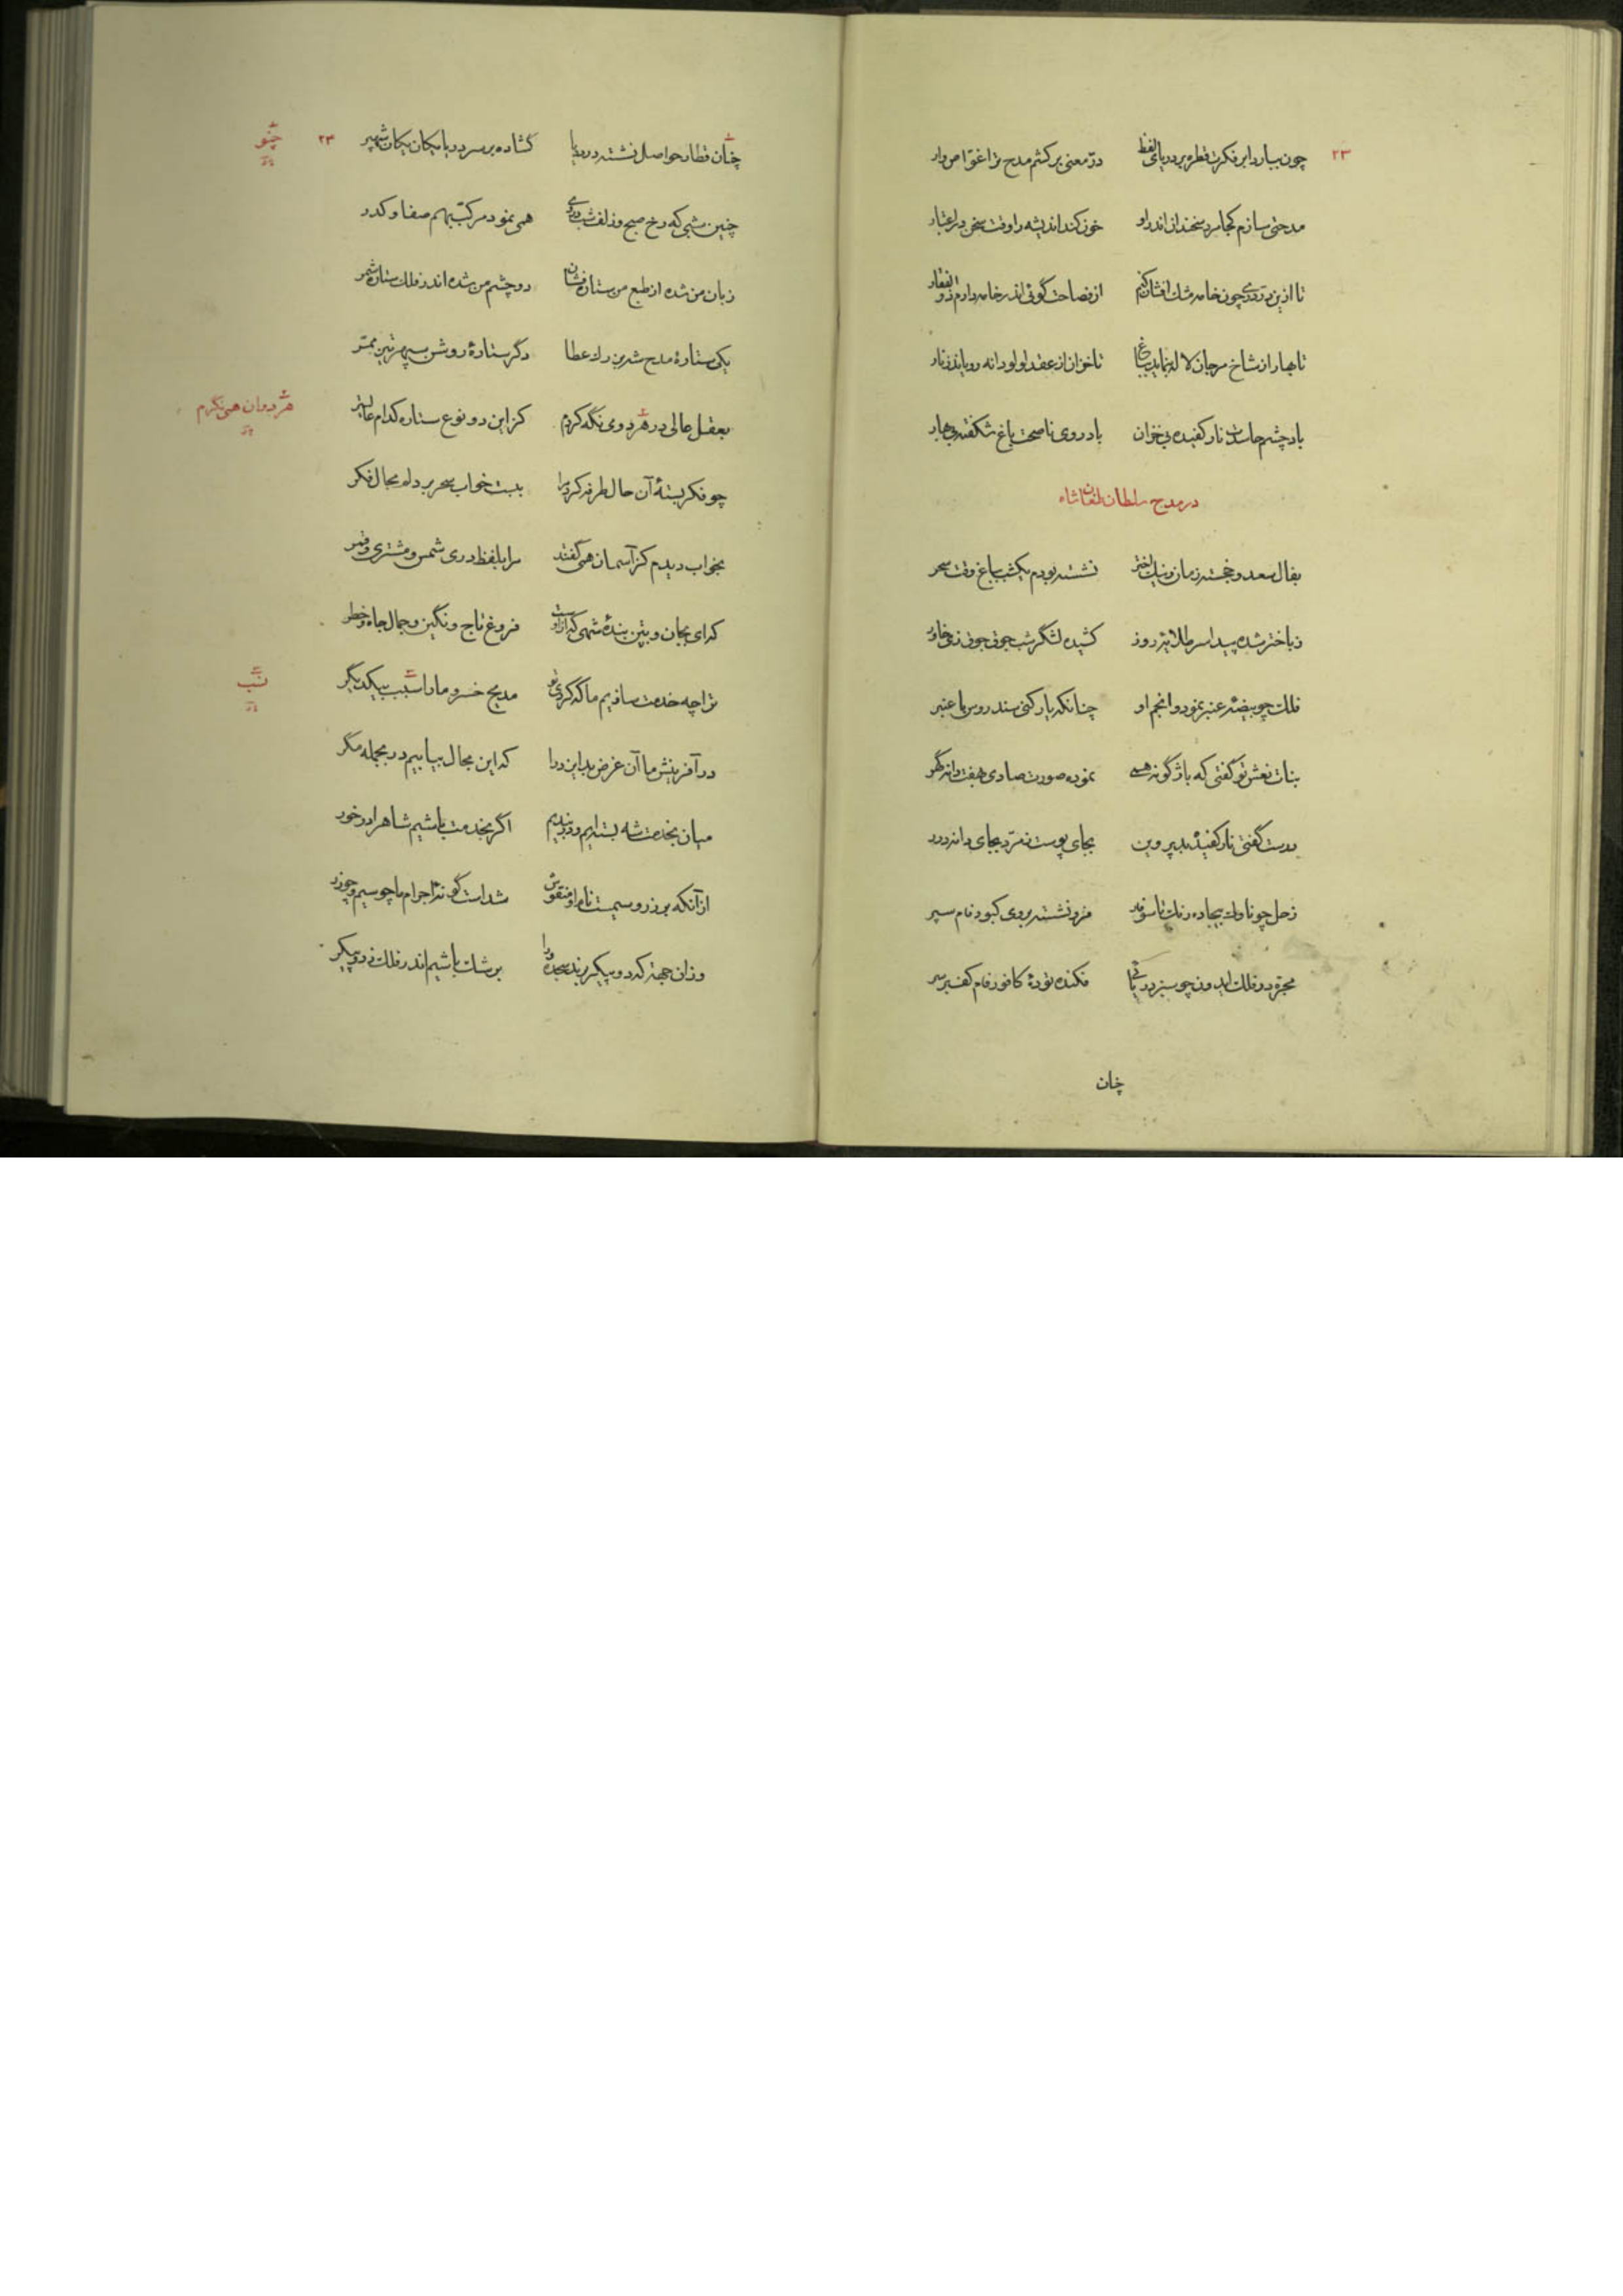 ۲۳
چون ببارد ابر فکرت قطره بر دریای لفظ درّ معنی برکشم مدح ترا غوّاص وار
مدحتی سازم کجا مرد سخندان اندر او خون کند اندیشه را وقت سخن در اعتبار
تا ازین در دری چون خامه مشک افشان کنم از فصاحت گوئی اندر خامه دارم ذوالفقار
تا بهار از شاخ مرجان لاله بنماید بباغ تا خزان از عقد لولو دانه رویاند ز نار
باد چشم حاسدت نار کفیده بی خزان باد روی ناصحت باغ شکفته بی بهار
در مدح سلطان طغانشاه
بفال سعد و خجسته زمان و نیک اختر نشسته بودم یکشب بباغ وقت سحر
ز باختر شده پیدا سر طلایه روز کشیده لشگر شب جوق جوق زی خاور
فلک چو بیضه عنبر نمود و انجم او چنانکه یار کنی سندروس با عنبر
بنات نعش تو گفتی که باژگونه همی نموده صورت صادی بهفت دانه گهر
درست گفتی نار کفیده بد پروین بجای پوست زمرّد بجای دانه درر
زحل چو ناوک بیجاده رنگ تا سوفار فرو نشسته بروی کبود فام سپر
مجرّه در فلک ایدون چو سبز دریائی فکنده توده کافور فام کف بر سر
چنان
چنو ۲۳
چنان قطار حواصل نشسته در دریا گشاده بر سر دریا یکان یکان شهپر
چنین شبی که رخ صبح و زلف شب در وی همی نمود مرکّب بهم صفا و کدر
زبان من شده از طبع من ستاره فشان دو چشم من شده اندر فلک ستاره شمر
یکی ستارۀ مدح شه بزرگ عطا دگر ستارۀ روشن سپهر تیره ممر
بعقل عالی در هر دوی نگه کردم کز این دو نوع ستاره کدام عالیتر
هر دوان همی نگرم
چو فکر بستۀ آن حال طرفه کرد مرا ببست خواب سحر بر دلم مجال فکر
بخواب دیدم کز آسمان همی گفتند مرا بلفظ دری شمس و مشتری و قمر
که ای بجان و بتن بندۀ شهی که از اوست فروغ تاج و نگین و جمال جاه و خطر
ترا چه خدمت سازیم ما که کردی تو مدیح خسرو ما را سبب بیکدیگر
نسب
در آفرینش ما آن غرض بد ایزد را که این مجال بیابیم در بجمله مگر
میان بخدمت شه بسته ایم و خرسندیم اگر بخدمت باشیم شاه را در خور
از آنکه بر زر و سیمست نام او منقوش شداست گونه اجرام ما چو سیم و چو زر
وزان جهة که دو پیکر برند سجده ورا برشک باشیم اندر فلک ز دو پیکر